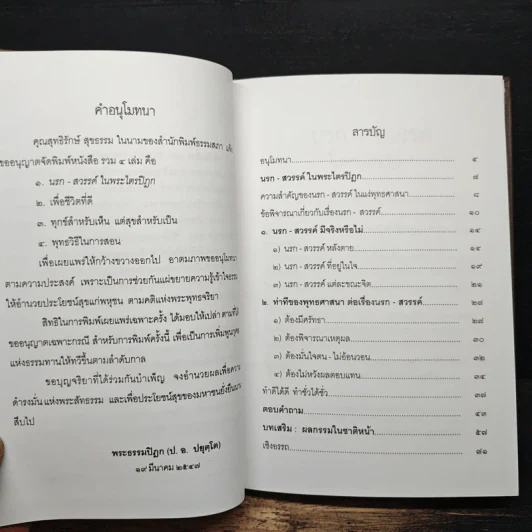 คำอนุโมทนา
คุณสุทธิรักษ์ สุขธรรม ในนามของสำนักพิมพ์ธรรมสภา
ขออนุญาตจัดพิมพ์หนังสือ รวม ๔ เล่ม คือ
๑. นรก - สวรรค์ ในพระไตรปิฎก
๒. เพื่อชีวิตที่ดี
๓. ทุกข์สำหรับเห็น แต่สุขสำหรับเป็น
๔. พุทธวิธีในการสอน
เพื่อเผยแพร่ให้กว้างขวางออกไป อาตมภาพขออนุโมทนา
ตามความประสงค์ เพราะเป็นการช่วยกันแผ่ขยายความรู้เข้าใจธรรม
ให้อำนวยประโยชน์สุขแก่พหุชน ตามคติแห่งพระพุทธจริยา
สิทธิในการพิมพ์เผยแพร่เฉพาะครั้ง ได้มอบให้เปล่า ตามที่ได้
ขออนุญาตเฉพาะกรณี สำหรับการพิมพ์ครั้งนี้ เพื่อเป็นการเพิ่มพูนกุศล
แห่งธรรมทานให้ทวีขึ้นตามลำดับกาล
ขอบุญจริยาที่ได้ร่วมกันบำเพ็ญ จงอำนวยผลเพื่อความ
ดำรงมั่นแห่งพระสัทธรรม และเพื่อประโยชน์สุขของมหาชนยั่งยืนนาน
สืบไป
พระธรรมปิฎก (ป. อ. ปยุตฺโต)
๑๙ มีนาคม ๒๕๔๗
สารบัญ
อนุโมทนา ๔
นรก - สวรรค์ ในพระไตรปิฎก ๗
ความสำคัญของนรก - สวรรค์ ในแง่พุทธศาสนา ๘
ข้อพิจารณาเกี่ยวกับเรื่องนรก - สวรรค์ ๑๐
๑. นรก - สวรรค์ มีจริงหรือไม่ ๑๔
๑) นรก - สวรรค์ หลังตาย ๑๔
๒) นรก - สวรรค์ ที่อยู่ในใจ ๑๙
๓) นรก - สวรรค์ แต่ละขณะจิต ๒๑
๒. ท่าทีของพุทธศาสนา ต่อเรื่องนรก - สวรรค์ ๒๗
๑) ต้องมีศรัทธา ๒๗
๒) ต้องพิจารณาเหตุผล ๓๐
๓) ต้องมั่นใจตน - ไม่อ้อนวอน ๓๒
๔) ต้องไม่หวังผลตอบแทน ๓๔
ทำดีได้ดี ทำชั่วได้ชั่ว ๓๗
ตอบคำถาม ๔๓
บทเสริม : ผลกรรมในชาติหน้า ๕๗
เชิงอรรถ ๘๑